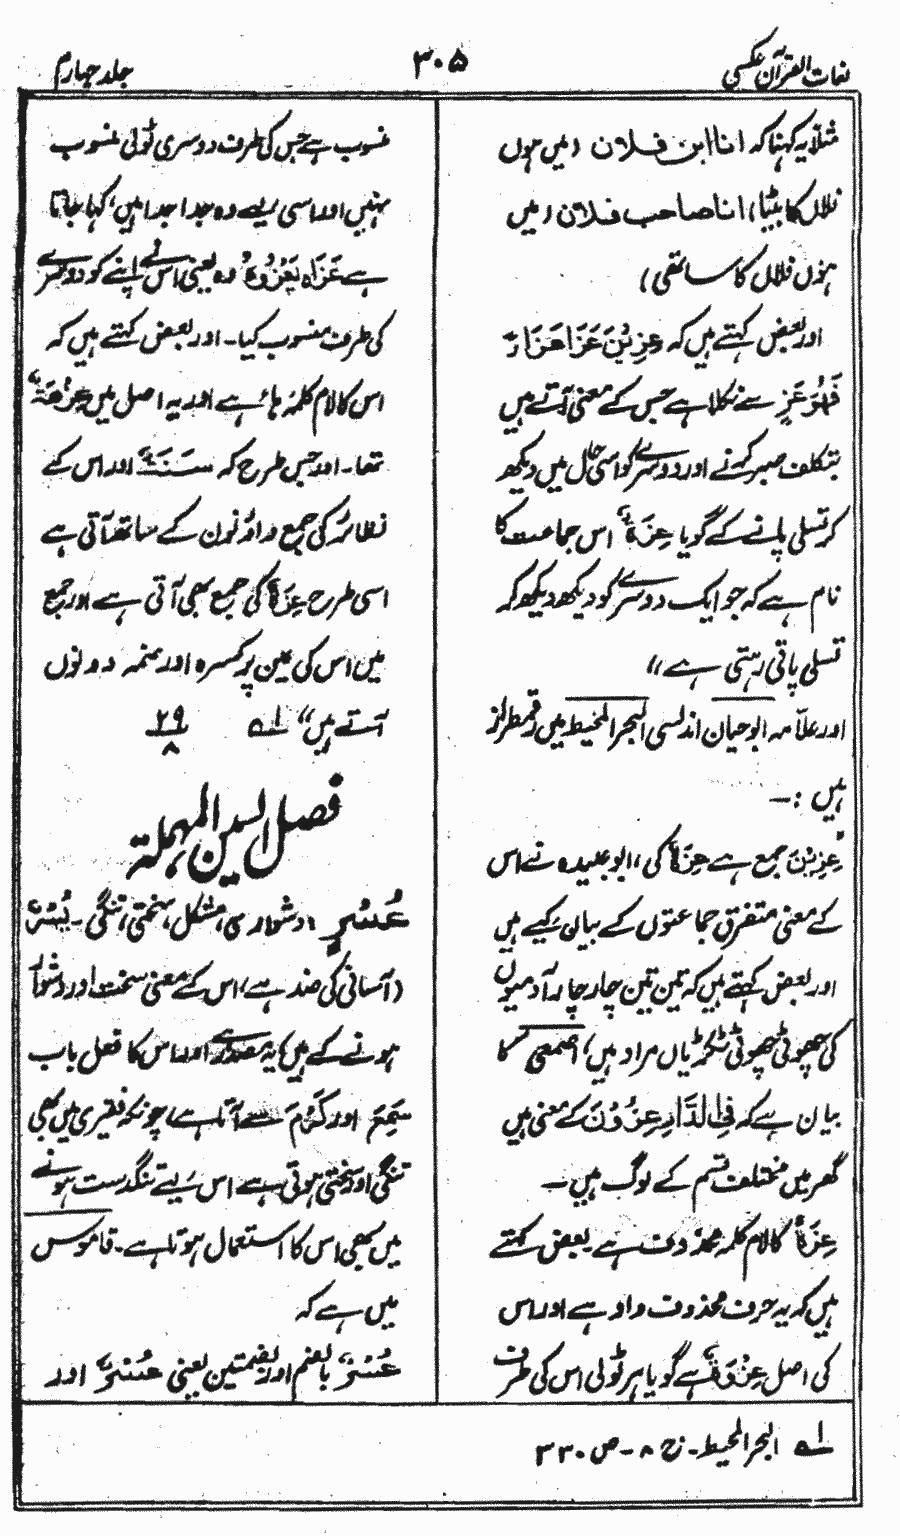 لغات القرآن عکسی
۳۰۵
جلد چہارم
مثلاً یہ کہنا کہ انا ابن فلان (میں ہوں
فلاں کا بیٹا) انا صاحب فلان (میں
ہوں فلاں کا ساتھی)
اور بعض کہتے ہیں کہ عِزِیْنَ عَزَا عَزَاءً
فَهُوَ عَزٍ سے نکلا ہے جس کے معنی آتے ہیں
بتکلف صبر کرنے اور دوسرے کو اسی حال میں دیکھ
کر تسلی پانے کے گویا عِزَةٌ اس جماعت کا
نام ہے کہ جو ایک دوسرے کو دیکھ دیکھ کر
تسلی پاتی رہتی ہے“
اور علامہ ابو حیان اندلسی البحر المحیط میں رقمطراز
ہیں :۔
عِزِیْنَ جمع ہے عِزَةٌ کی، ابو عبیدہ نے اس
کے معنی متفرق جماعتوں کے بیان کیے ہیں
اور بعض کہتے ہیں کہ تین تین چار چار آدمیوں
کی چھوٹی چھوٹی ٹکڑیاں مراد ہیں، اصمعی کا
بیان ہے کہ فِی الدَّارِ عِزُوْنَ کے معنی ہیں
گھر میں مختلف قسم کے لوگ ہیں۔
عِزَةٌ کا لام کلمہ محذوف ہے۔ بعض کہتے
ہیں کہ یہ حرف محذوف واو ہے اور اس
کی اصل عِزْوَةٌ ہے گویا ہر ٹولی اس کی طرف
منسوب ہے جس کی طرف دوسری ٹولی منسوب
نہیں اور اسی لیے وہ جدا جدا ہیں، کہا جاتا
ہے عَزَاهُ یَعْزُوْهُ وہ یعنی اس نے اپنے کو دوسرے
کی طرف منسوب کیا۔ اور بعض کہتے ہیں کہ
اس کا لام کلمہ ہاء ہے اور یہ اصل میں عِزْهَةٌ
تھا۔ اور جس طرح کہ سَنَةٌ اور اس کے
نظائر کی جمع واؤ نون کے ساتھ آتی ہے
اسی طرح عِزَةٌ کی جمع بھی آتی ہے اور جمع
میں اس کی عین پر کسرہ اور ضمہ دونوں
آتے ہیں“ لہ ۲۹/۸
فصل السین المہملۃ
عُسْرٍ دشواری، مشکل، سختی، تنگی۔ یُسْرٌ
(آسانی کی ضد ہے، اس کے معنی سخت اور دشوار
ہونے کے ہیں) یہ مصدر ہے اور اس کا فعل باب
سَمِعَ اور کَرُمَ سے آتا ہے، چونکہ فقیری میں بھی
تنگی اور سختی ہوتی ہے اس لیے تنگدست ہونے
میں بھی اس کا استعمال ہوتا ہے۔ قاموس
میں ہے کہ
عُسْرٌ بالضم اور بضمتین یعنی عُسُرٌ اور
لہ البحر المحیط۔ ج ۸۔ ص ۳۳۰